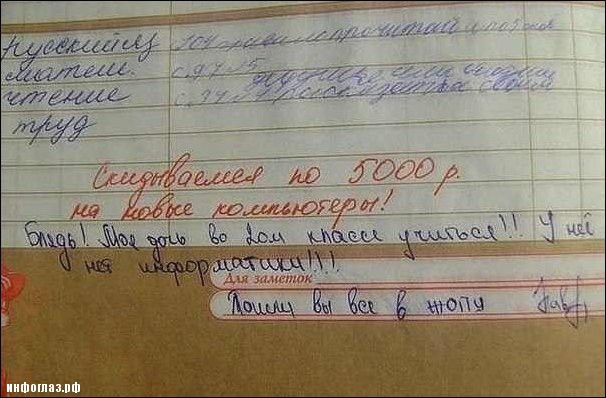 Русский яз 104 правило прочитать
матем. с.97 №5
чтение с.34
труд
Скидываемся по 5000 р.
на новые компьютеры!
Блядь! Моя дочь во 2ом классе учиться!! У неё
нет информатики!!!!
Для заметок
Пошли вы все в жопу
инфоглаз.рф